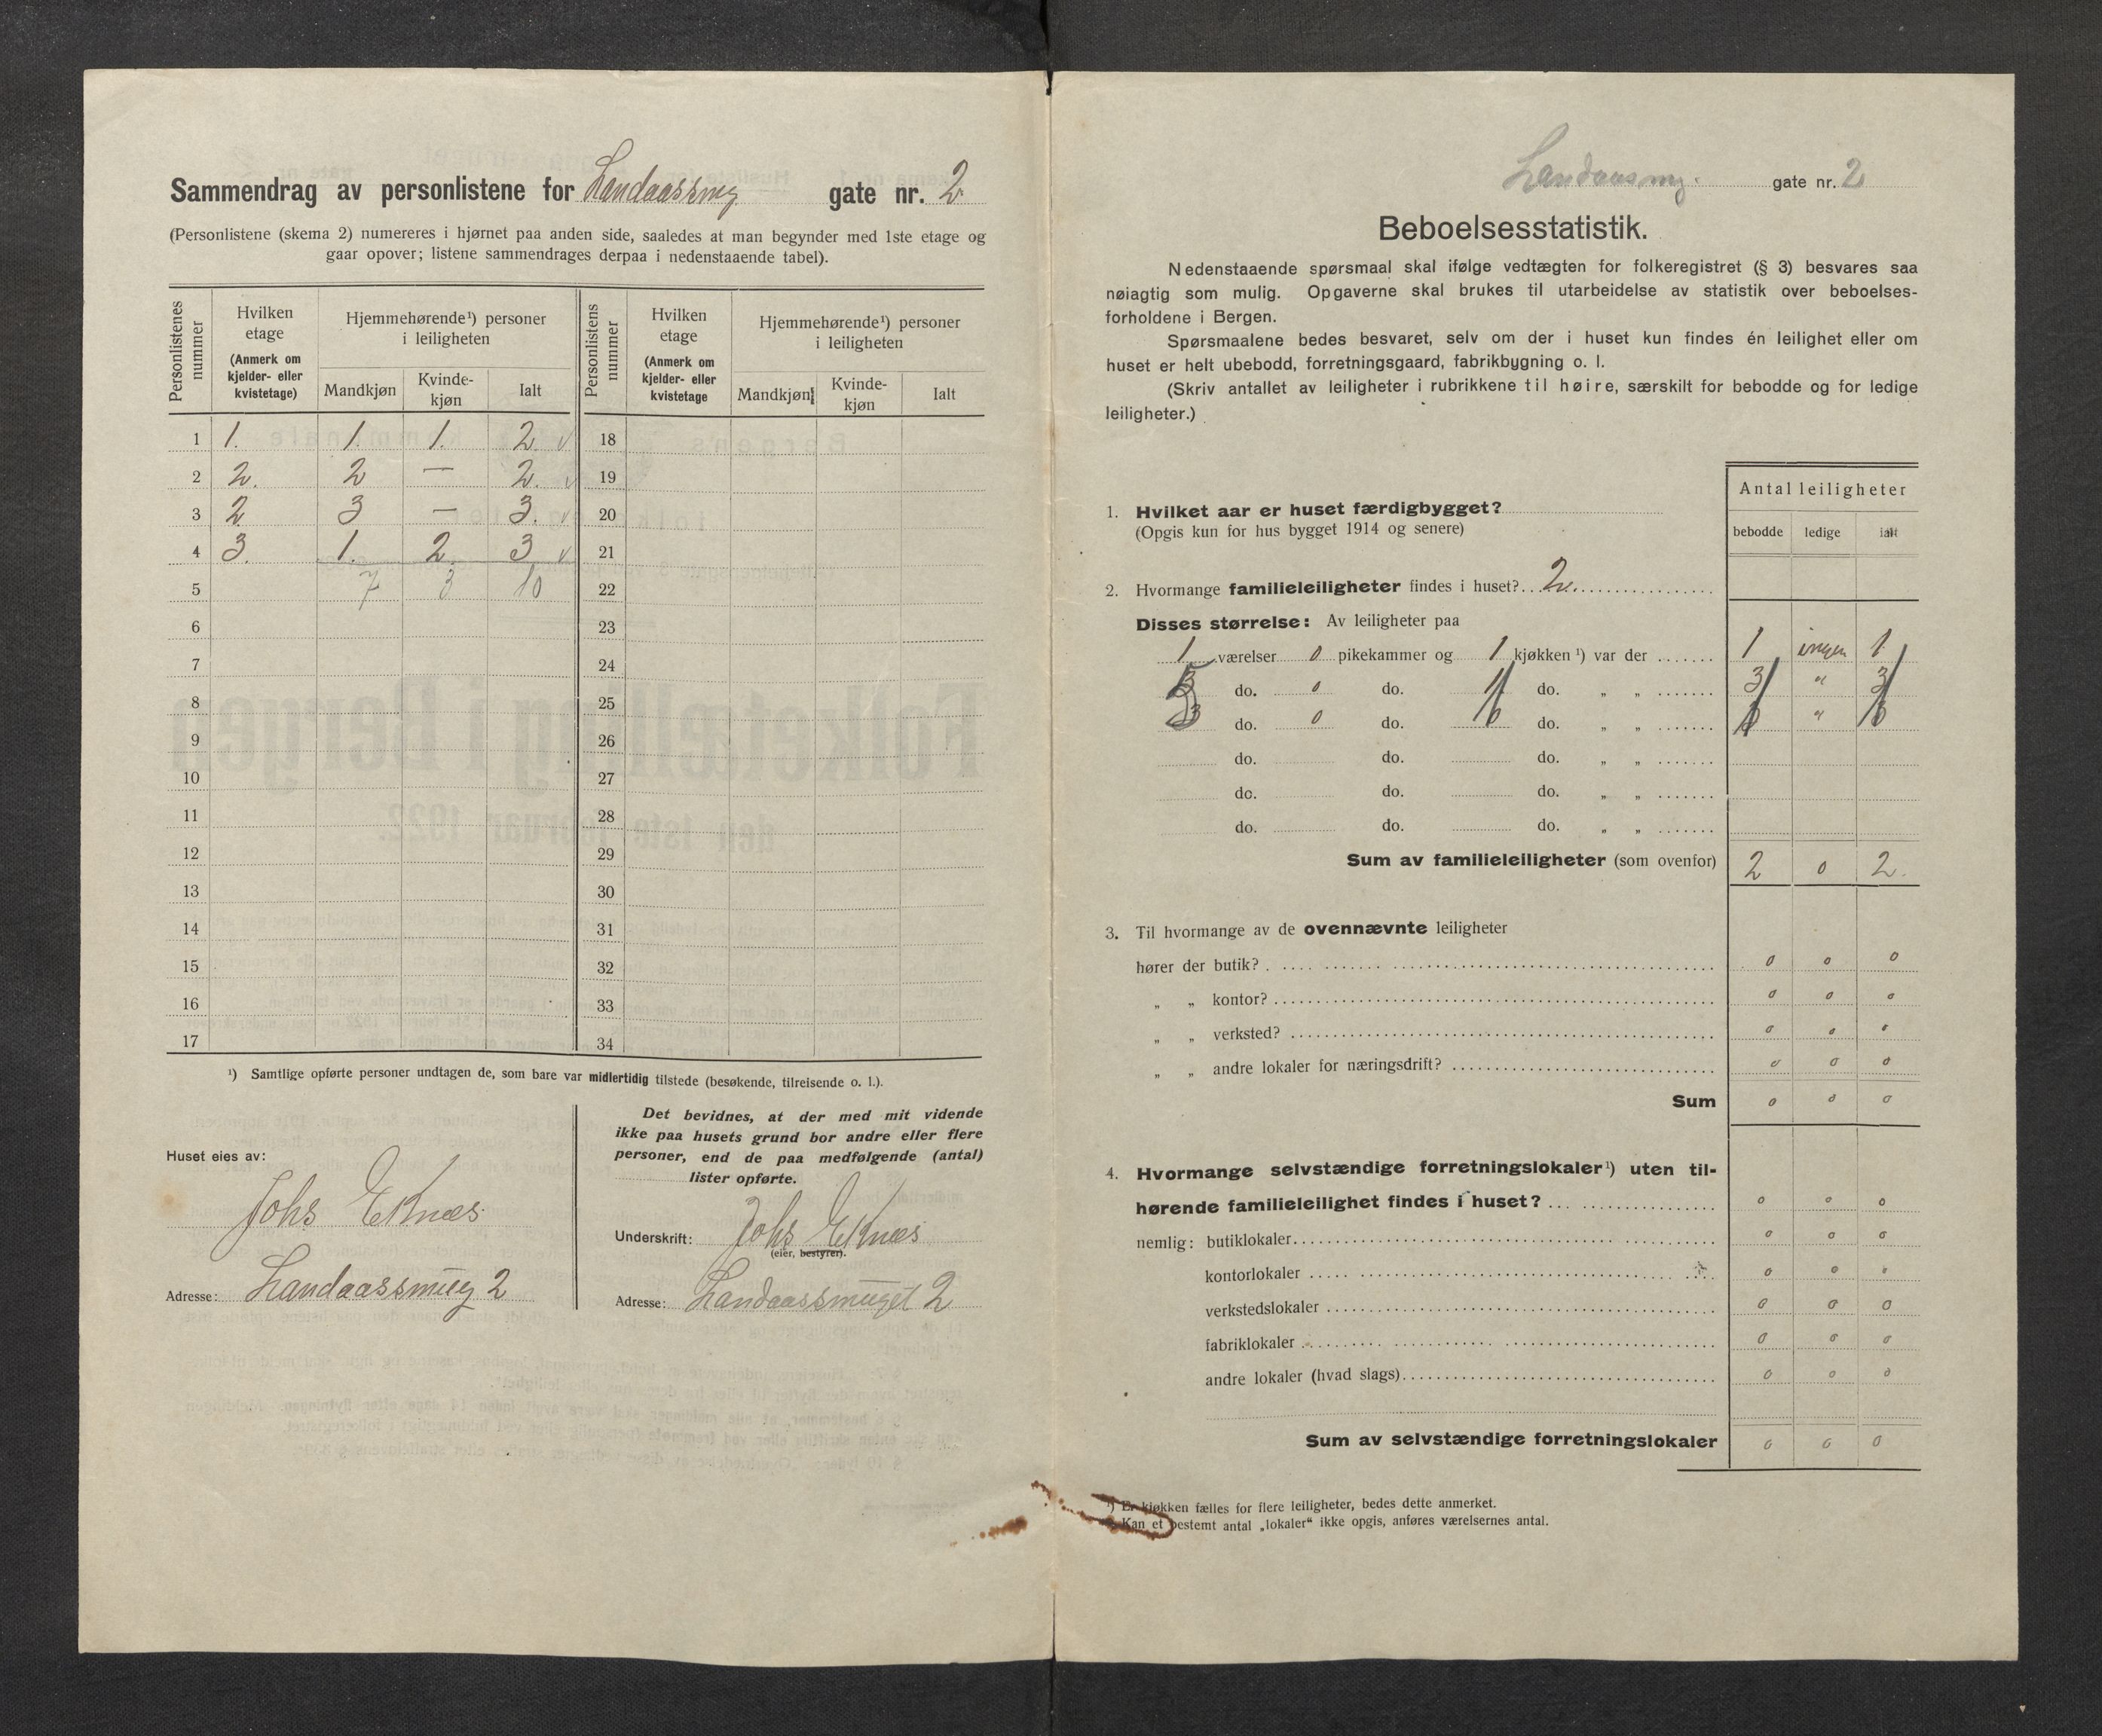 Sammendrag av personlistene for Landaassmug gate nr. 2
(Personlistene (skema 2) numereres i hjørnet paa anden side, saaledes at man begynder med 1ste etage og
gaar opover; listene sammendrages derpaa i nedenstaaende tabel).
Personlistenes nummer
Hvilken etage (Anmerk om kjelder- eller kvistetage)
Hjemmehørende¹) personer i leiligheten
Mandkjøn Kvinde-kjøn Ialt
Personlistens nummer
Hvilken etage (Anmerk om kjelder- eller kvistetage)
Hjemmehørende¹) personer i leiligheten
Mandkjøn Kvinde-kjøn Ialt
1 1. 1. 1. 2 v 18
2 2. 2 — 2. v 19
3 2 3 — 3. v 20
4 3. 1. 2. 3 v 21
5 7 3 10 22
6 23
7 24
8 25
9 26
10 27
11 28
12 29
13 30
14 31
15 32
16 33
17 34
¹) Samtlige opførte personer undtagen de, som bare var midlertidig tilstede (besøkende, tilreisende o. l.).
Huset eies av:
Johs Eknes
Adresse: Landaassmug 2
Det bevidnes, at der med mit vidende
ikke paa husets grund bor andre eller flere
personer, end de paa medfølgende (antal)
lister opførte.
Underskrift: Johs Eknes
(eier, bestyrer).
Adresse: Landaassmuget 2
Landaasmg. gate nr. 2
Beboelsesstatistik.
Nedenstaaende spørsmaal skal ifølge vedtægten for folkeregistret (§ 3) besvares saa
nøiagtig som mulig. Opgaverne skal brukes til utarbeidelse av statistik over beboelses-
forholdene i Bergen.
Spørsmaalene bedes besvaret, selv om der i huset kun findes én leilighet eller om
huset er helt ubebodd, forretningsgaard, fabrikbygning o. l.
(Skriv antallet av leiligheter i rubrikkene til høire, særskilt for bebodde og for ledige
leiligheter.)
Antal leiligheter
bebodde ledige ialt
1. Hvilket aar er huset færdigbygget?
(Opgis kun for hus bygget 1914 og senere)
2. Hvormange familieleiligheter findes i huset? 2
Disses størrelse: Av leiligheter paa
1 værelser 0 pikekammer og 1 kjøkken ¹) var der 1 ingen 1
do. 0 do. do. „ „ 3 " 3
3 do. 0 do. do. „ „ "
do. do. do. „ „
do. do. do. „ „
do. do. do. „ „
Sum av familieleiligheter (som ovenfor) 2 0 2.
3. Til hvormange av de ovennævnte leiligheter
hører der butik? 0 0 0
„ „ kontor? 0 0 0
„ „ verksted? 0 0 0
„ „ andre lokaler for næringsdrift? 0 0 0
Sum 0 0 0
4. Hvormange selvstændige forretningslokaler¹) uten til-
hørende familieleilighet findes i huset? 0 0 0
nemlig: butiklokaler 0 0 0
kontorlokaler 0 0 0
verkstedslokaler 0 0 0
fabriklokaler 0 0 0
andre lokaler (hvad slags) 0 0 0
Sum av selvstændige forretningslokaler 0 0 0
¹) Er kjøkken fælles for flere leiligheter, bedes dette anmerket.
Kan et bestemt antal „lokaler“ ikke opgis, anføres værelsernes antal.